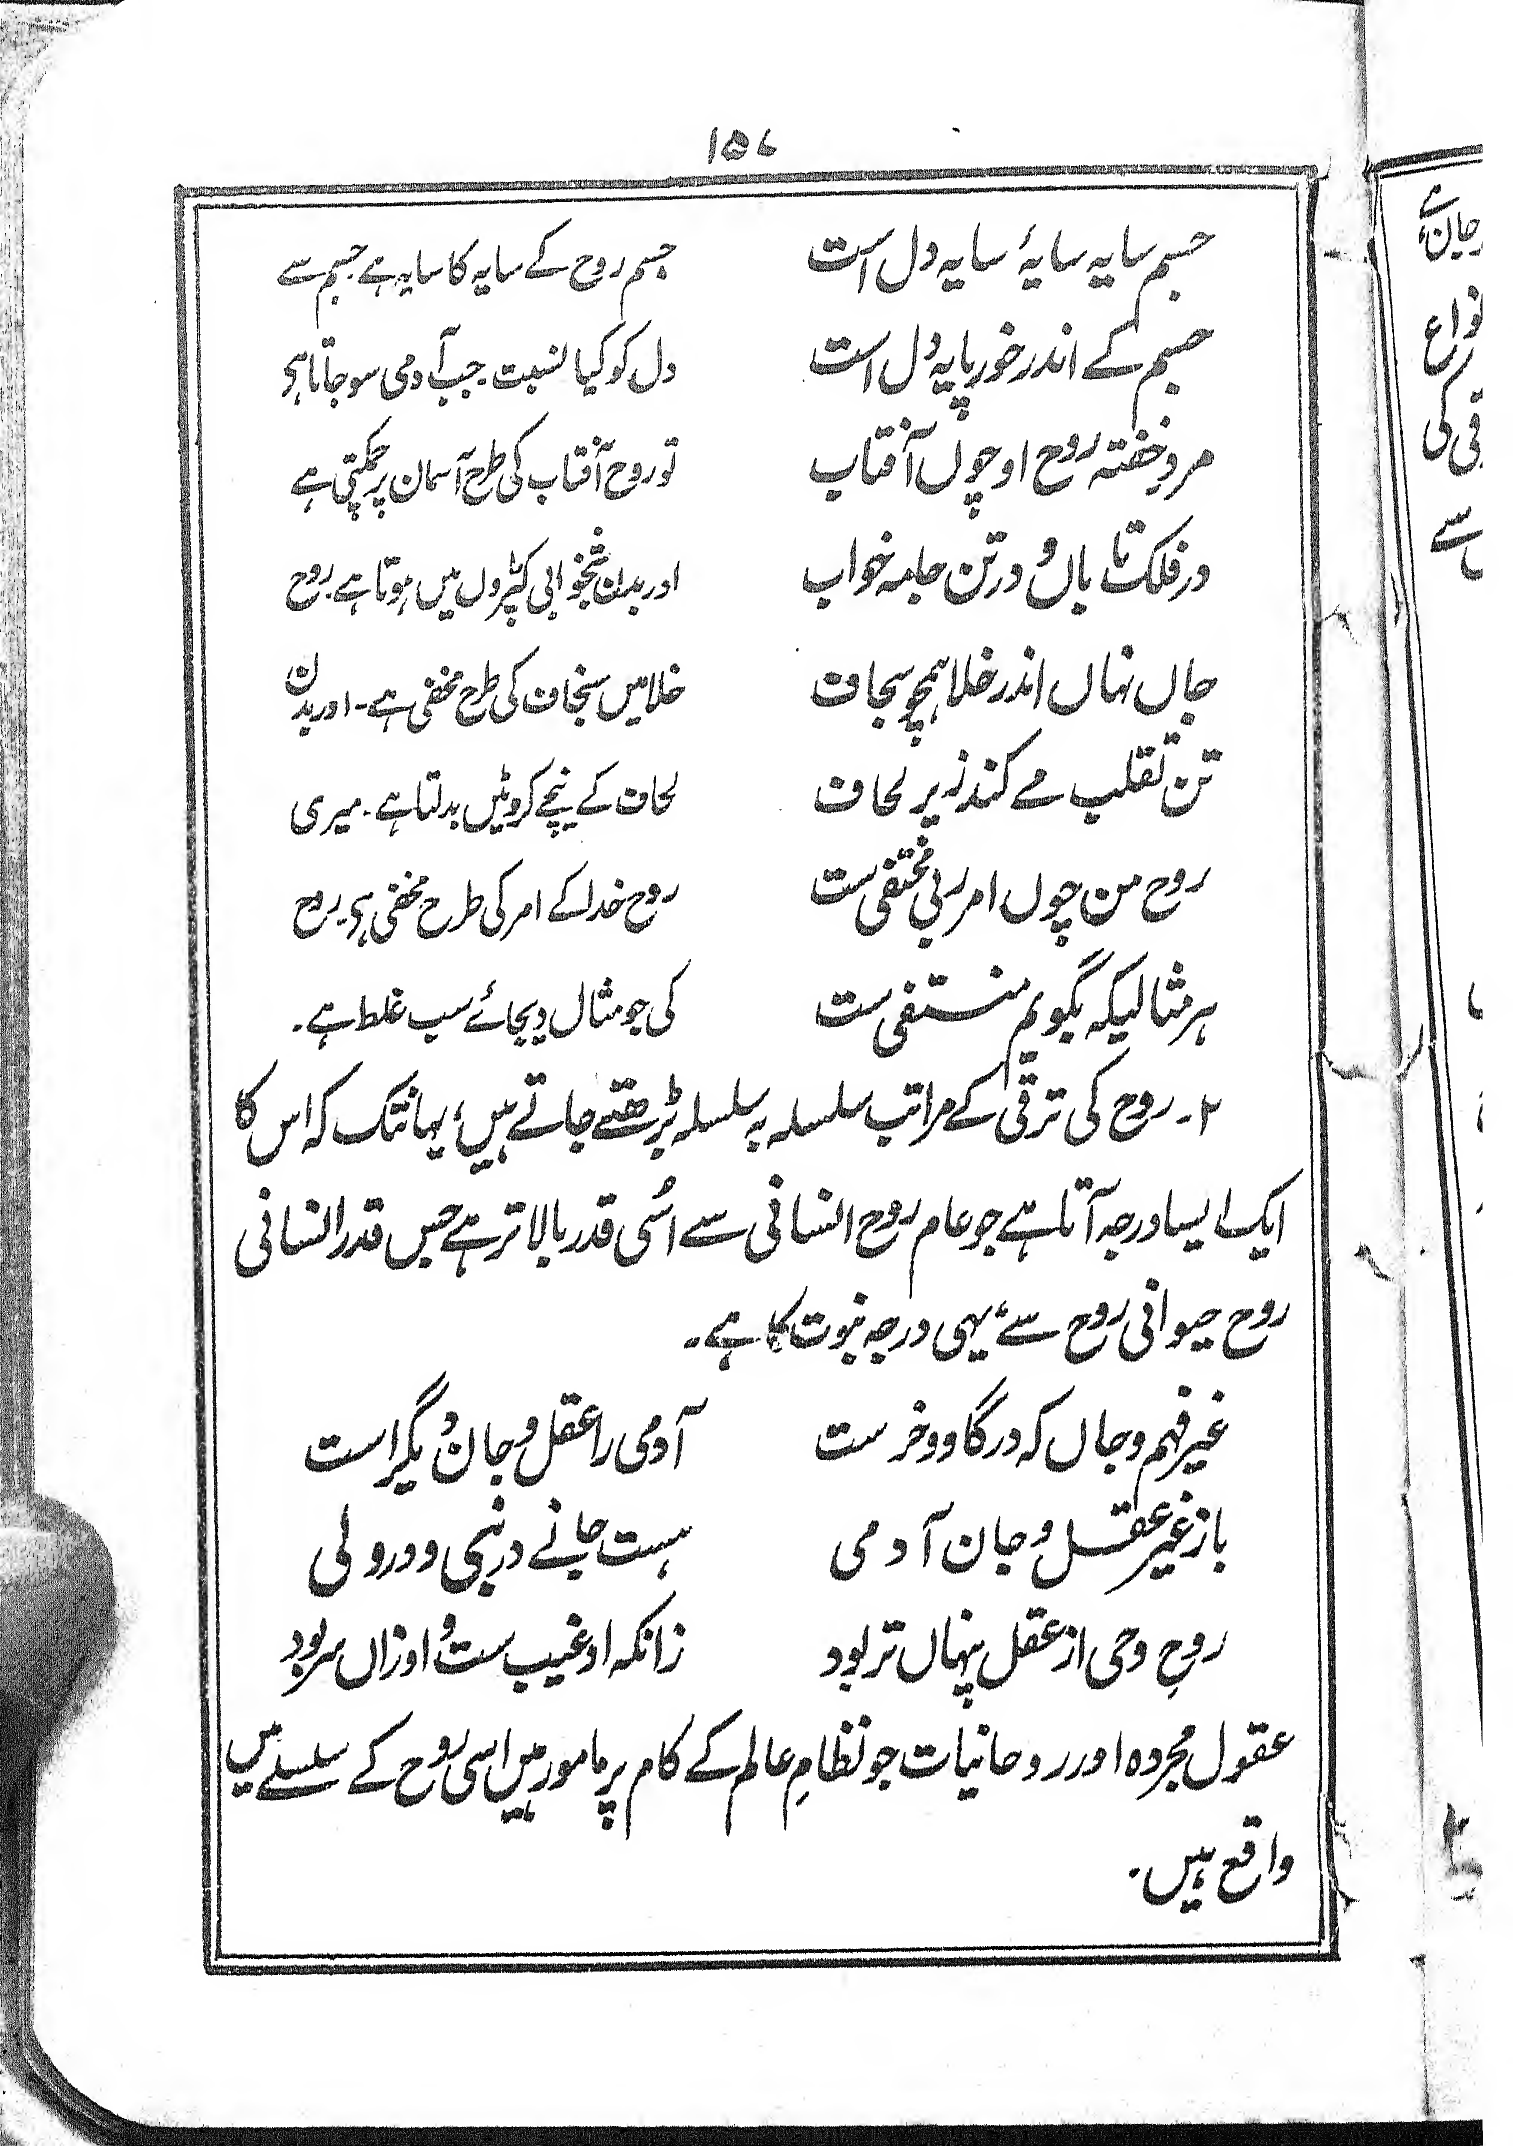 ۱۵۷
جسم سایہ سایۂ سایہ دل است جسم روح کے سایہ کا سایہ ہے جسم سے
جسم کے اندر خور پایہ دل است دل کو کیا نسبت جب آدمی سو جاتا ہی
مردِ خفتہ روح او چوں آفتاب تو روح آفتاب کی طرح آسمان پر چمکتی ہے
در فلک تاباں و در تن جامہ خواب اور بدن شبخوابی کپڑوں میں ہوتا ہے۔ روح
جاں نہاں اندر خلا ہمچو سجاف خلا میں سنجاف کی طرح مخفی ہے۔ اور بدن
تن تقلب مے کند زیر لحاف لحاف کے نیچے کروٹیں بدلتا ہے۔ میری
روح من چوں امر ربی مختفی ست روح خدا کے امر کی طرح مخفی ہی۔ روح
ہر مثالیکہ بگویم منتفی ست کی جو مثال دیجائے سب غلط ہے۔
۲۔ روح کی ترقی کے مراتب سلسلہ بہ سلسلہ بڑھتے جاتے ہیں، یہانتک کہ اس کا
ایک ایسا درجہ آتا ہے جو عام روح انسانی سے اُسی قدر بالاتر ہے جس قدر انسانی
روح حیوانی روح سے، یہی درجہ نبوت کا ہے۔
غیر فہم و جاں کہ در گاو و خر ست آدمی را عقل و جان دیگر است
باز غیر عقل و جان آدمی ہست جانے در نبی و در ولی
روحِ وحی از عقل پنہاں تر بود زانکہ او غیب ست و او زاں سر بود
عقول مجردہ اور روحانیات جو نظامِ عالم کے کام پر مامور ہیں اسی روح کے سلسلے میں
واقع ہیں۔
نواع
قی کی
سے